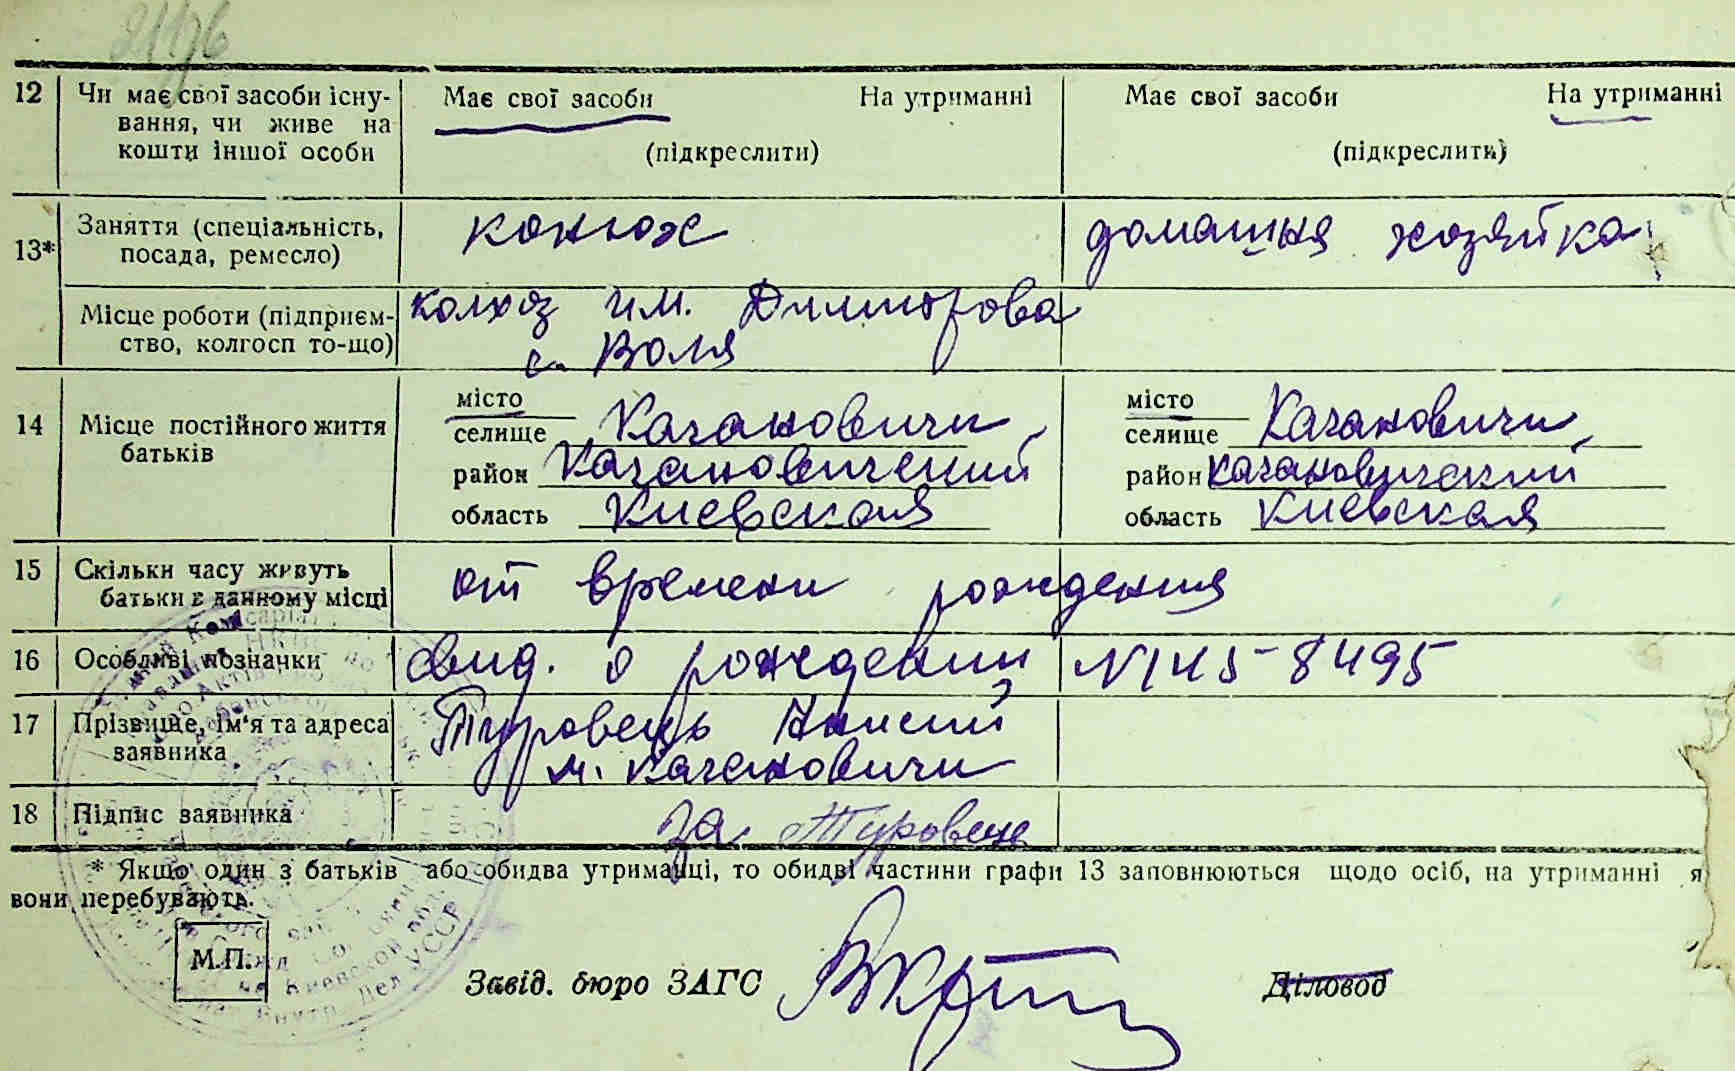 2176
12 Чи має свої засоби існу-
вання, чи живе на
кошти іншої особи
Має свої засоби На утриманні
(підкреслити)
Має свої засоби На утриманні
(підкреслити)
13* Заняття (спеціальність,
посада, ремесло)
конюх
домашня хозяйка
Місце роботи (підприєм-
ство, колгосп то-що)
колхоз им. Димитрова
с. Воля
14 Місце постійного життя
батьків
місто
селище Кагановичи
район Кагановический
область Киевская
місто
селище Кагановичи
район Кагановический
область Киевская
15 Скільки часу живуть
батьки в данному місці
от времени рождения
16 Особливі позначки
свид. о рождении №145-8495
17 Прізвище, ім'я та адреса
заявника
Туровець
м. Кагановичи
18 Підпис заявника
за Туровец
* Якщо один з батьків або обидва утриманці, то обидві частини графи 13 заповнюються щодо осіб, на утриманні я
вони перебувають.
М.П.
Завід. бюро ЗАГС
Діловод
Киевской обл.
Внутр. Дел УССР